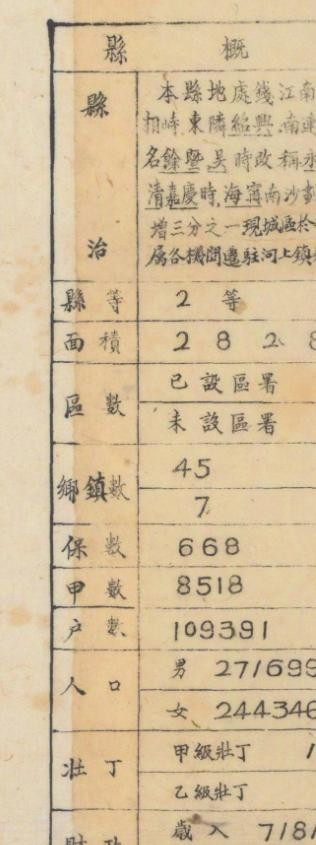 縣 概
縣治
本縣地處錢江南
相峙東隣紹興.南連
名餘暨吳時改稱永
清嘉慶時,海甯南沙
增三分之一現城區於
屬各機関遷駐河上鎮
縣等 2 等
面積 2 8 2 8
區數 已設區署
未設區署
鄉鎮數 45
7
保數 668
甲數 8518
戶數 109391
人口 男 271699
女 244346
壯丁 甲級壯丁 1
乙級壯丁
歲入 7181